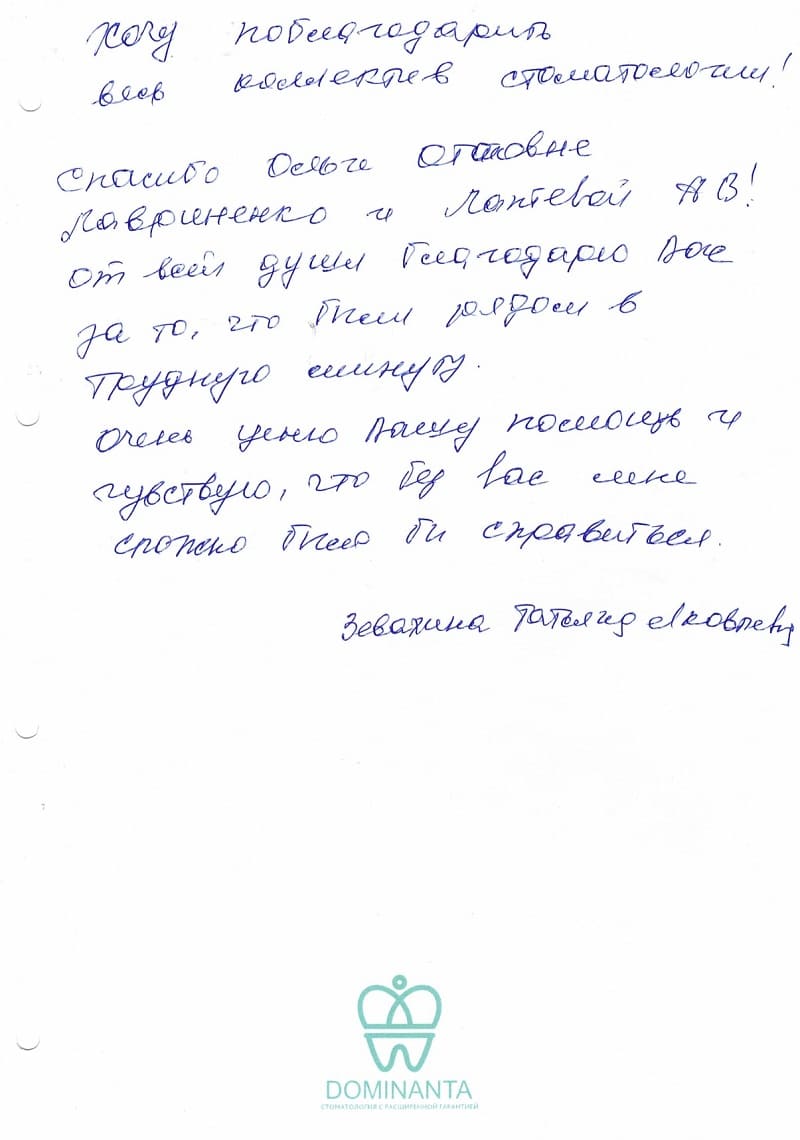 Хочу поблагодарить
весь коллектив стоматологии!
Спасибо Ольге
Лавриненко и Лаптевой АВ!
От всей души благодарю Вас
за то, что были рядом в
трудную минуту.
Очень ценю Вашу помощь и
чувствую, что без Вас мне
сложно было бы справиться.
Зевахина Татьяна Яковлевна
DOMINANTA
СТОМАТОЛОГИЯ С РАСШИРЕННОЙ ГАРАНТИЕЙ